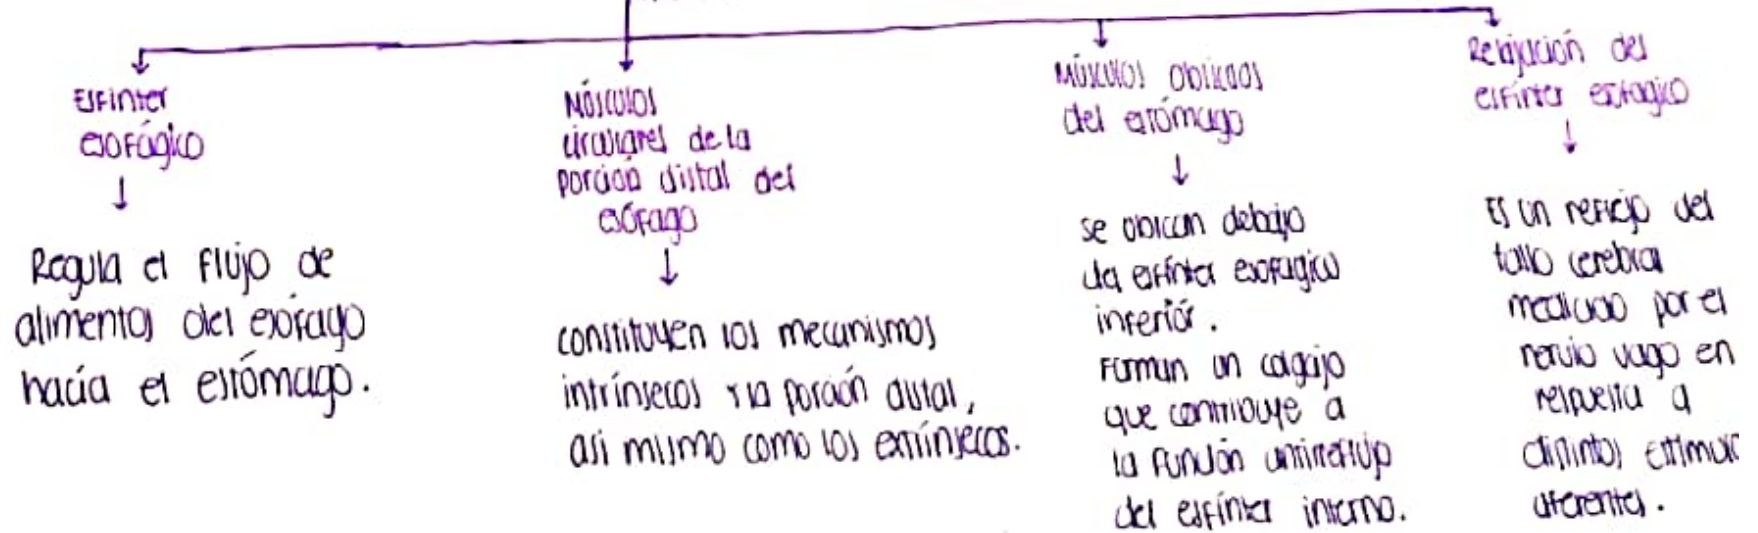 Esfinter
esofágico
Regula el flujo de
alimentos del esófago
hacía el estómago.
Músculos
circulares de la
porción distal del
esófago
constituyen los mecanismos
intrínsecos y la porción distal,
asi mismo como los extínsecos.
Músculos oblicuos
del estómago
se obican debajo
del esfínter esofagico
inferiór.
Forman un colgajo
que contribuye a
la función antirreflujo
del esfínter interno.
Relajación del
esfinter esofagico
Es un reflejo del
tallo cerebral
mediado por el
nervio vago en
respuesta a
distintos
aferentes.